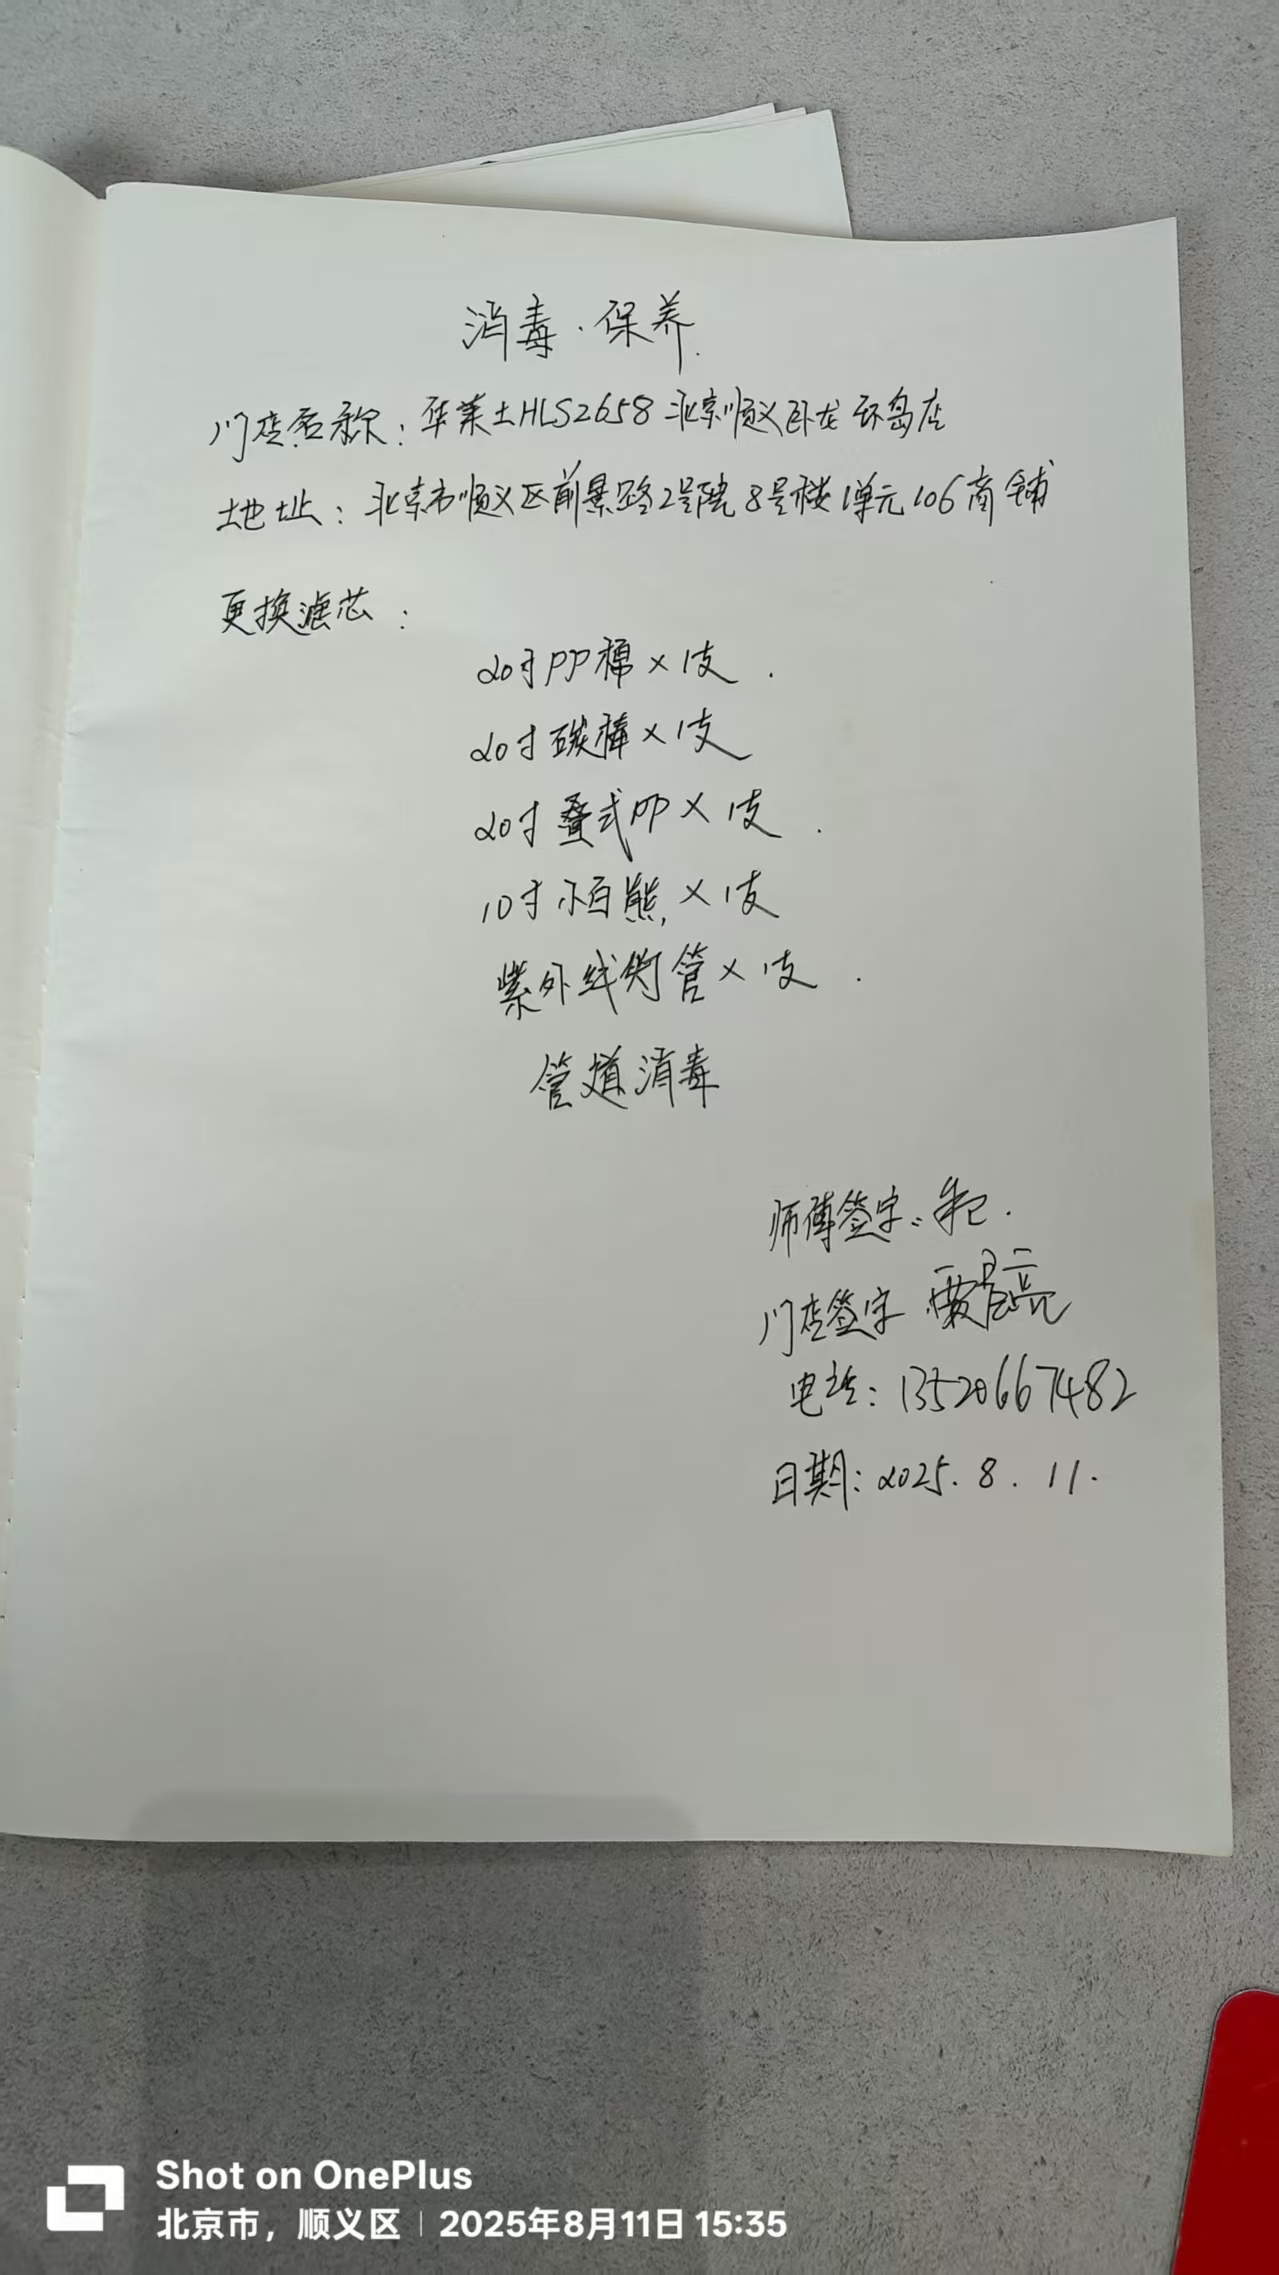 消毒·保养.
门店名称：华莱士HLS2658北京顺义卧龙环岛店
地址：北京市顺义区前景路2号院8号楼1单元106商铺
更换滤芯：
20寸PP棉×1支.
20寸碳棒×1支
20寸叠式PP×1支.
10寸小白熊×1支
紫外线灯管×1支.
管道消毒
师傅签字：
门店签字
电话：13520667482
日期：2025.8.11.
Shot on OnePlus
北京市，顺义区 | 2025年8月11日 15:35